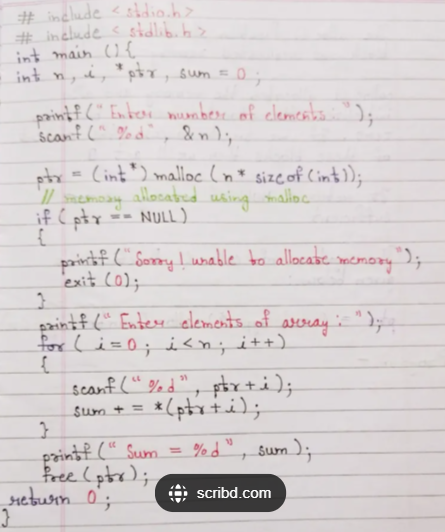 # include <stdio.h>
# include <stdlib.h>
int main () {
int n, i, *ptr, sum = 0 ;
printf("Enter number of elements: ");
scanf(" %d" , &n);
ptr = (int*) malloc (n* sizeof(int));
// memory allocated using malloc
if ( ptr == NULL)
{
printf("Sorry! unable to allocate memory");
exit (0);
}
printf(" Enter elements of array : ");
for ( i=0 ; i<n ; i++)
{
scanf(" %d", ptr+i);
sum + = *(ptr+i);
}
printf(" Sum = %d", sum);
free (ptr);
return 0 ;
}
scribd.com